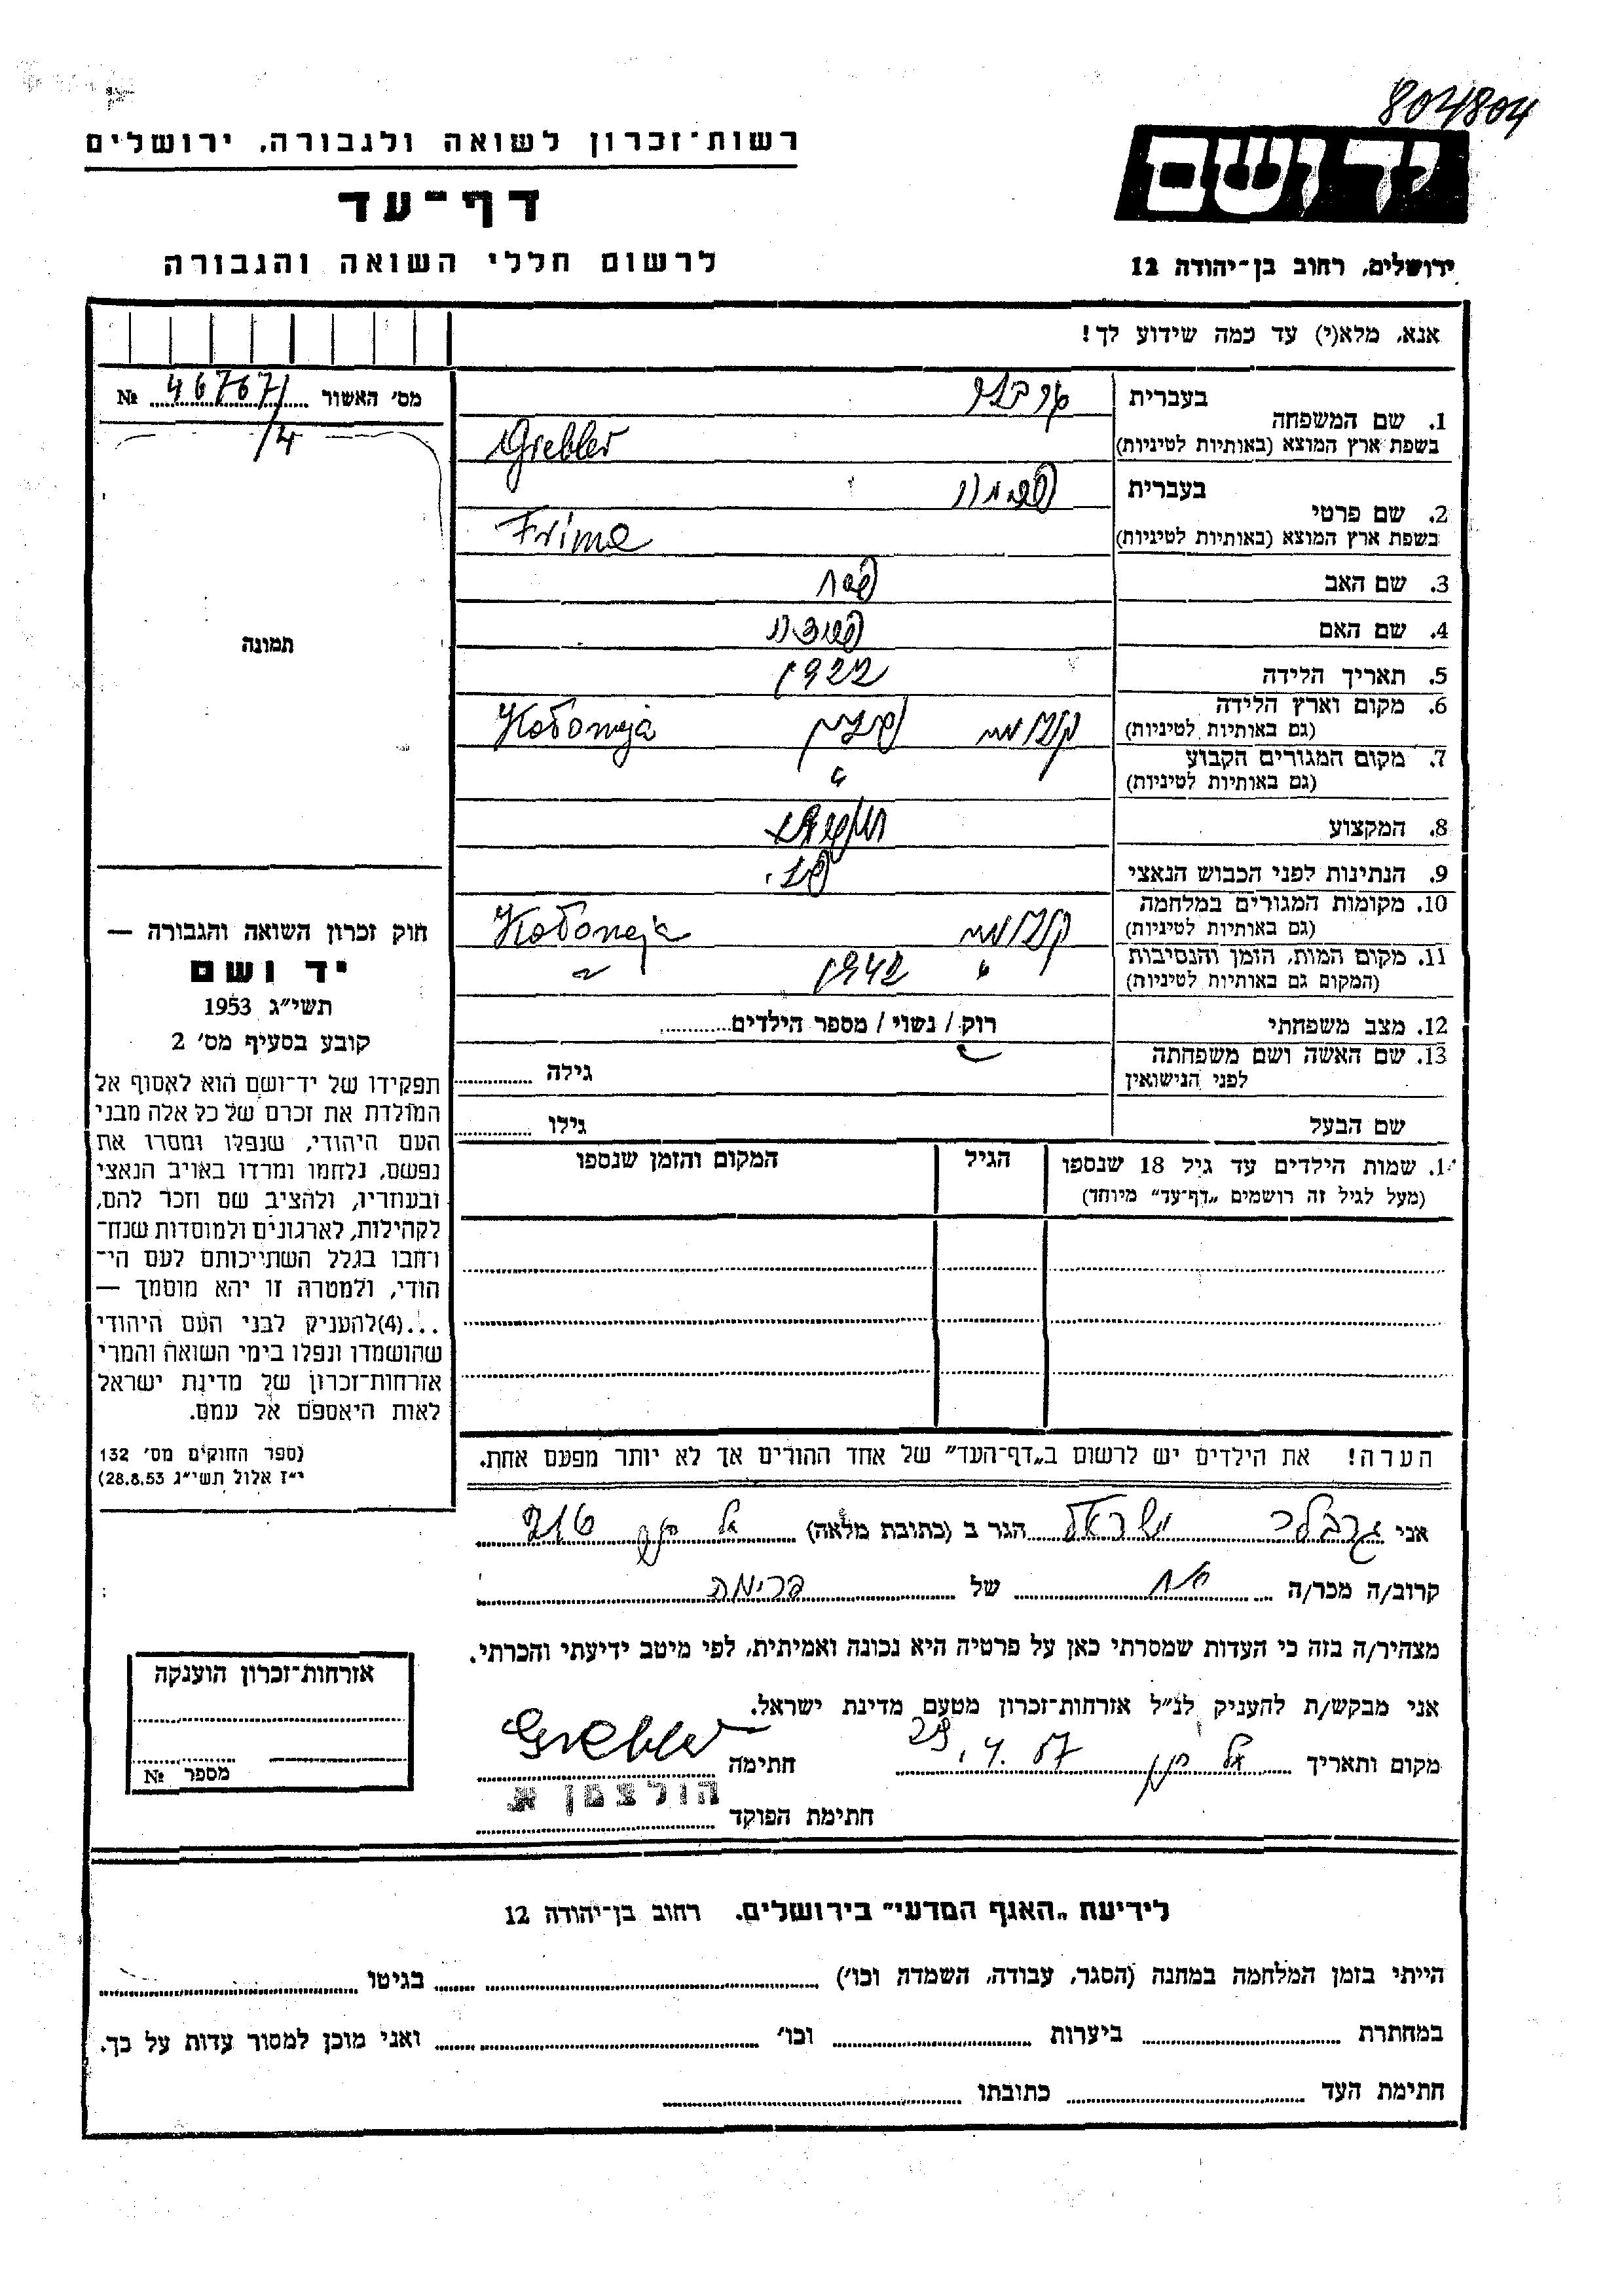 804804
רשות־זכרון לשואה ולגבורה, ירושלים
דף־עד
לרשום חללי השואה והגבורה
ידושם
ירושלים, רחוב בן־יהודה 12
אנא, מלא(י) עד כמה שידוע לך!
מס׳ האשור 46767/ №
/4
תמונה
בעברית
1. שם המשפחה
בשפת ארץ המוצא (באותיות לטיניות) Grebler
בעברית
2. שם פרטי
בשפת ארץ המוצא (באותיות לטיניות) Frima
3. שם האב
4. שם האם
5. תאריך הלידה 1922
6. מקום וארץ הלידה
(גם באותיות לטיניות) קולומיי פולין Kołomyja
7. מקום המגורים הקבוע
(גם באותיות לטיניות) "
8. המקצוע
9. הנתינות לפני הכבוש הנאצי פול.
10. מקומות המגורים במלחמה
(גם באותיות לטיניות) קולומיי Kołomeja
11. מקום המות, הזמן והנסיבות
(המקום גם באותיות לטיניות) " 1942 "
12. מצב משפחתי רוק / נשוי / מספר הילדים
13. שם האשה ושם משפחתה
לפני הנישואין גילה
שם הבעל גילו
1. שמות הילדים עד גיל 18 שנספו
(מעל לגיל זה רושמים „דף־עד” מיוחד)
הגיל
המקום והזמן שנספו
הערה! את הילדים יש לרשום ב„דף־העד” של אחד ההורים אך לא יותר מפעם אחת.
חוק זכרון השואה והגבורה —
יד ושם
תשי״ג 1953
קובע בסעיף מס׳ 2
תפקידו של יד־ושם הוא לאסוף אל
המולדת את זכרם של כל אלה מבני
העם היהודי, שנפלו ומסרו את
נפשם, נלחמו ומרדו באויב הנאצי
ובעוזריו, ולהציב שם וזכר להם,
לקהילות, לארגונים ולמוסדות שנח־
רבו בגלל השתייכותם לעם הי־
הודי, ולמטרה זו יהא מוסמך —
...(4)להעניק לבני העם היהודי
שהושמדו ונפלו בימי השואה והמרי
אזרחות־זכרון של מדינת ישראל
לאות היאספם אל עמם.
(ספר החוקים מס׳ 132
י״ז אלול תשי״ג 28.8.53)
אני גרבלר ישראל הגר ב (כתובת מלאה)
קרוב/ה מכר/ה אח של פרימה
מצהיר/ה בזה כי העדות שמסרתי כאן על פרטיה היא נכונה ואמיתית, לפי מיטב ידיעתי והכרתי.
אני מבקש/ת להעניק לנ״ל אזרחות־זכרון מטעם מדינת ישראל.
מקום ותאריך 23.4.57 חתימה Grebler
חתימת הפוקד הולצמן א
אזרחות־זכרון הוענקה
מספר №
לידיעת „האגף המדעי” בירושלים, רחוב בן־יהודה 12
הייתי בזמן המלחמה במחנה (הסגר, עבודה, השמדה וכו׳) בגיטו
במחתרת ביערות וכו׳ ואני מוכן למסור עדות על כך.
חתימת העד כתובתו